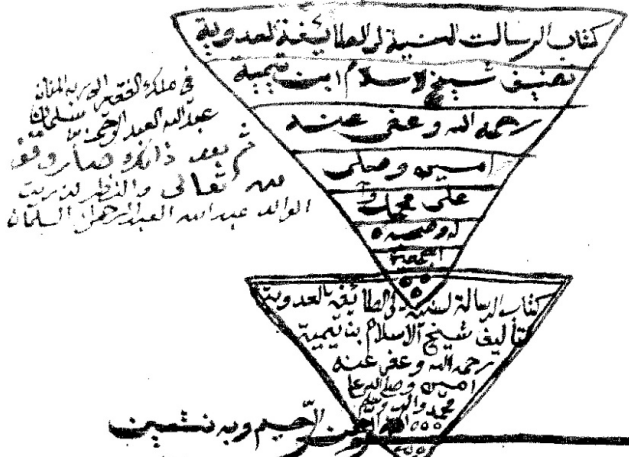 كتاب الرسالت السنية الى الطايفة العدوية
تصنيف شيخ الاسلام ابن تيمية
رحمه الله وعفى عنه
امين وصلى
على محمد وآ
له وصحبه
اجمعين
في ملك الفقير الى ربه المنان
عبدالله العبد الرحمن سليمان
ثم بعد ذالك وصار وقف
لله تعالى والنظر لذريت
الوالد عبدالله العبد الرحمن السلمان
كتاب الرسالة السنية الى الطائفه العدوية
تأليف شيخ الاسلام بن تيمية
رحمه الله وعفى عنه
امين وصلى الله على
محمد واله
الرحمن الرحيم وبه نستعين